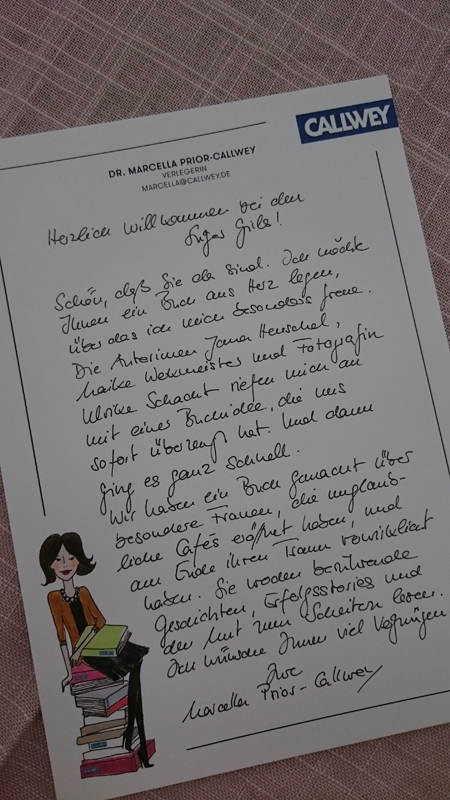 CALLWEY
DR. MARCELLA PRIOR-CALLWEY
VERLEGERIN
MARCELLA@CALLWEY.DE
Herzlich Willkommen bei den
Sugar Girls!
Schön, daß Sie da sind. Ich möchte
Ihnen ein Buch ans Herz legen,
über das ich mich besonders freue.
Die Autorinnen Jana Henschel,
Meike Werkmeister und Fotografin
Ulrike Schacht riefen mich an
mit einer Buchidee, die uns
sofort überzeugt hat. Und dann
ging es ganz schnell.
Wir haben ein Buch gemacht über
besondere Frauen, die unglaub-
liche Cafés eröffnet haben, und
am Ende ihren Traum verwirklicht
haben. Sie werden berührende
Geschichten, Erfolgsstories und
den Mut zum Scheitern lesen.
Ich wünsche Ihnen viel Vergnügen
Ihre
Marcella Prior-Callwey